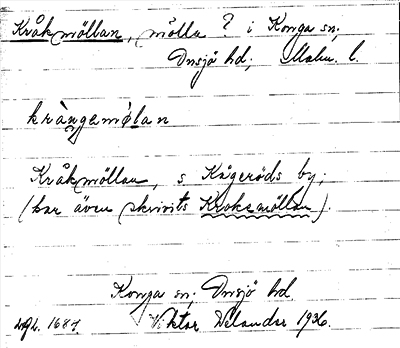 Kråkmöllan, mölla ? i Konga sn;
Onsjö hd; Malm. l.
kràngamø̀lan
Kråkmöllan, s Kågeröds by;
(har även skrivits Kroksmöllan).
Konga sn; Onsjö hd.
1687. Viktor Delander 1936.